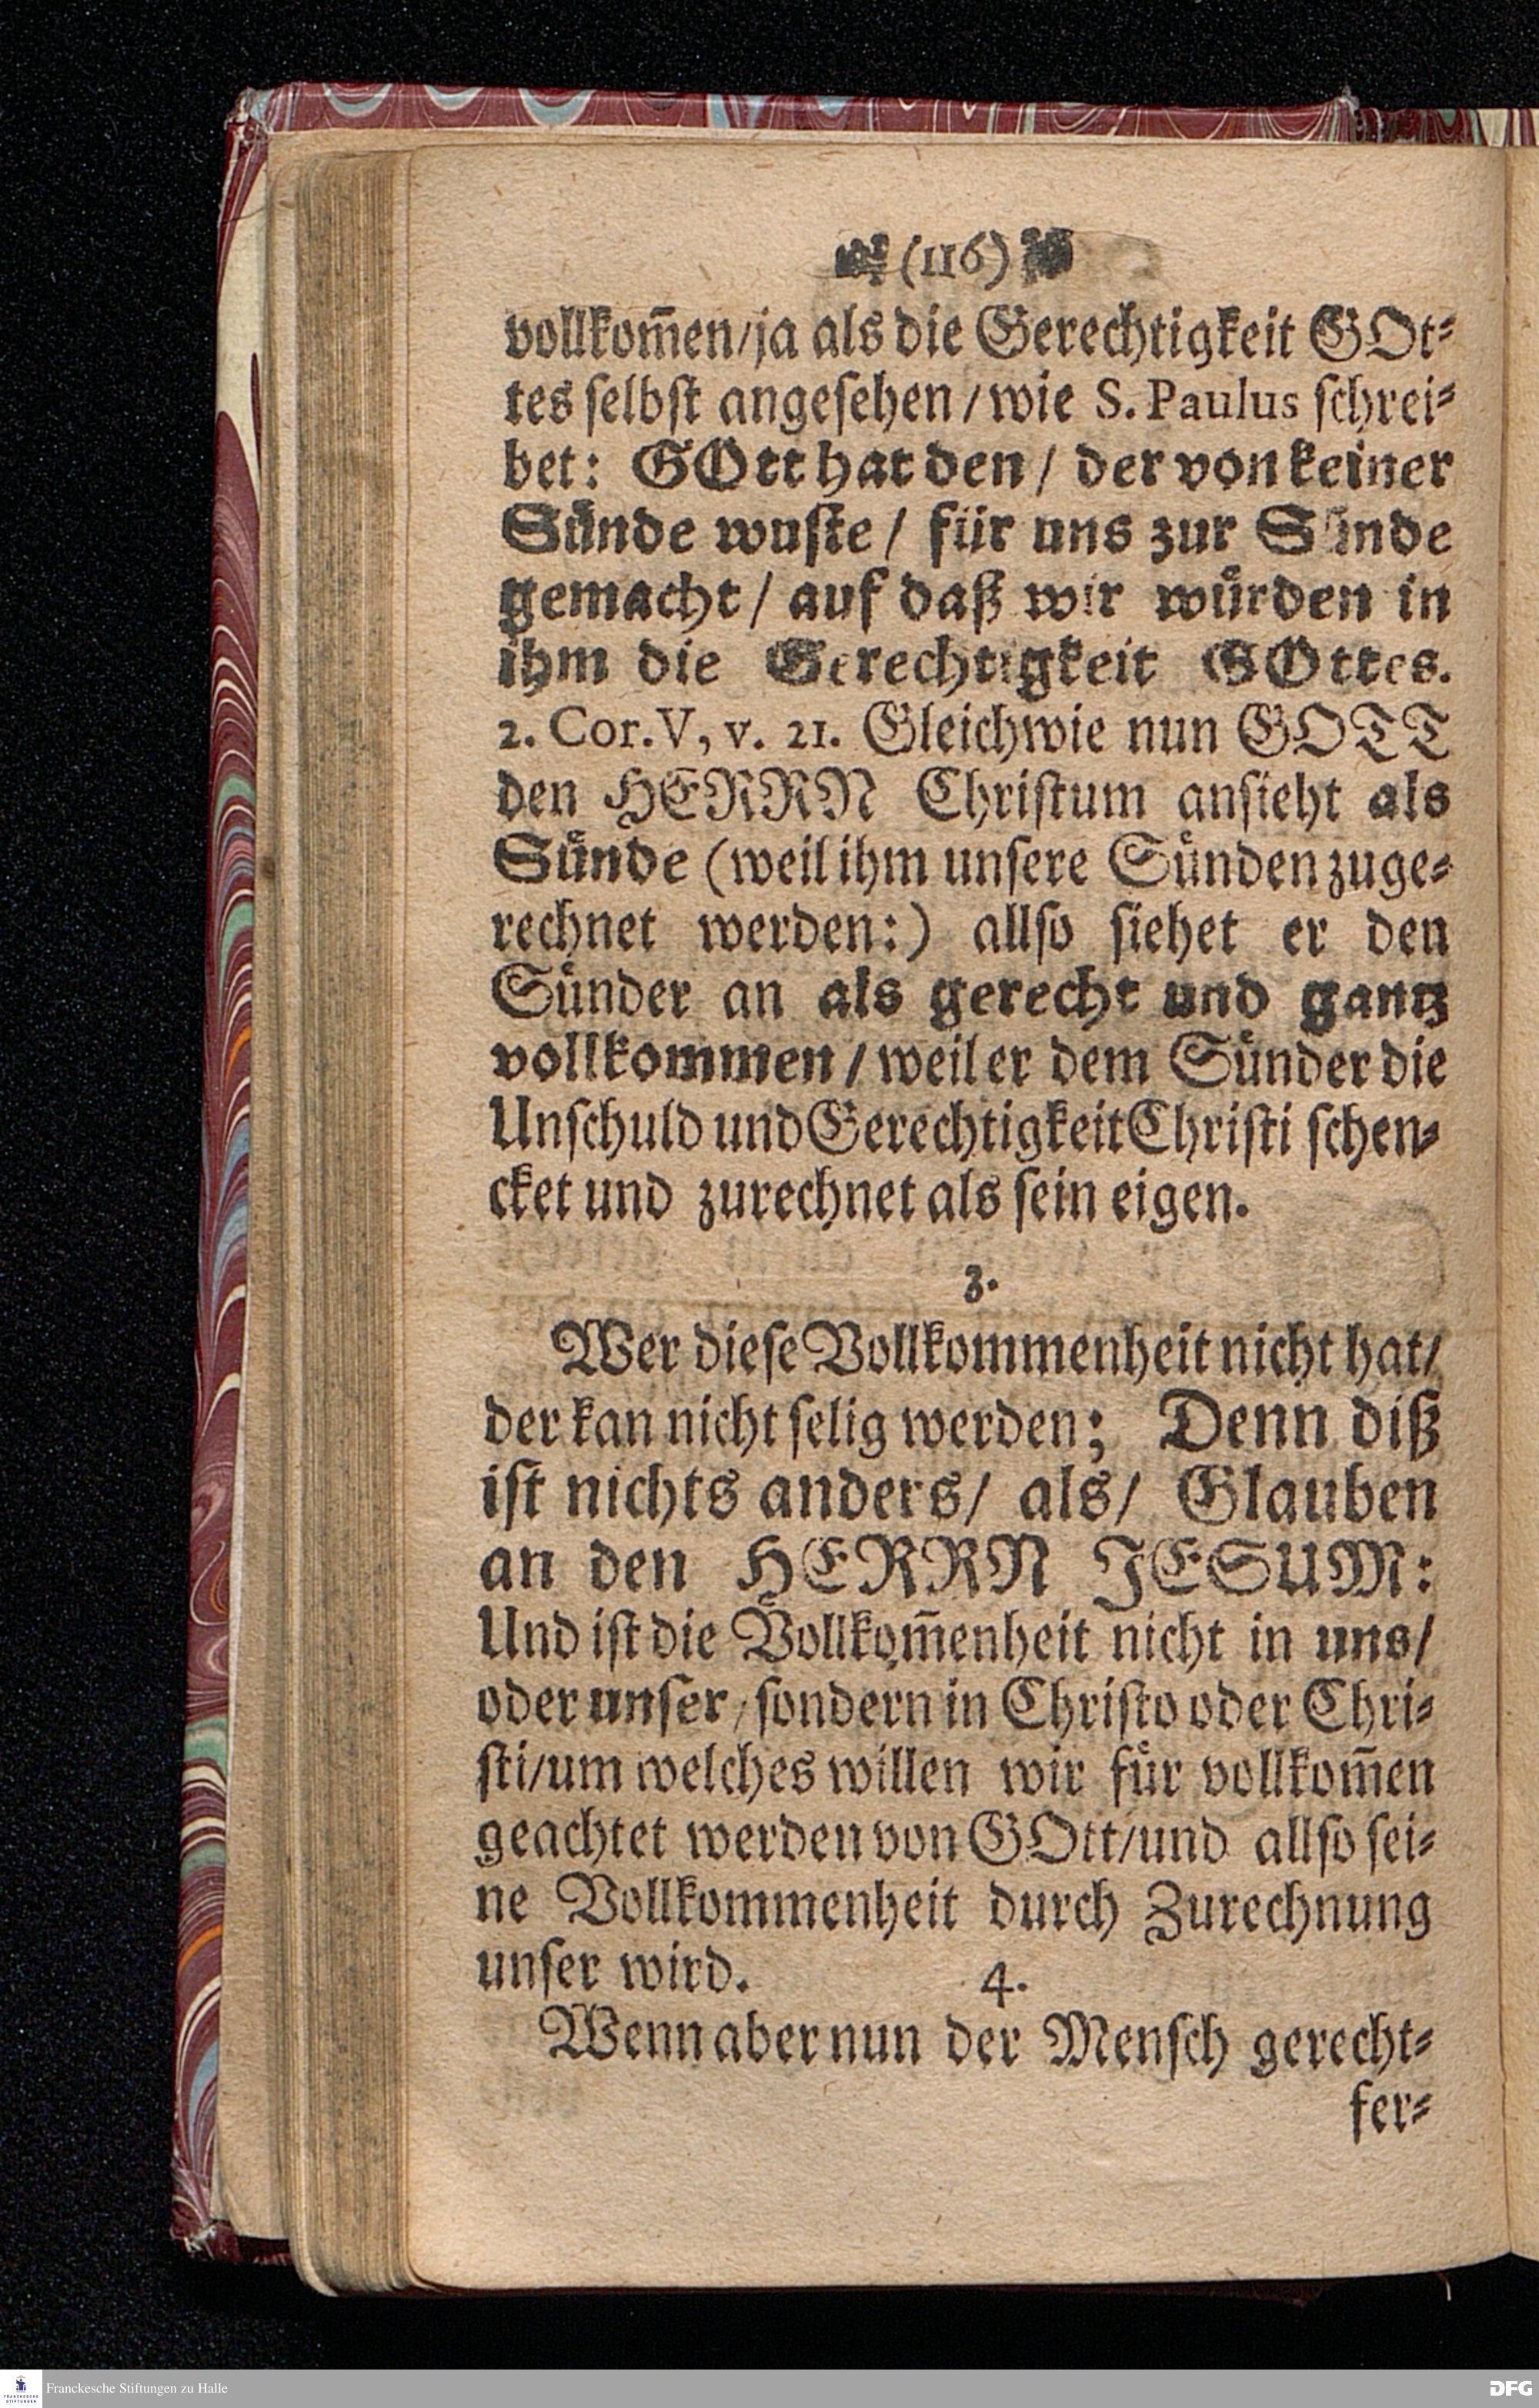 (116)
vollkom̅en/ja als die Gerechtigkeit GOt⸗
tes selbst angesehen/wie S. Paulus schrei⸗
bet: GOtt hat den/ der von keiner
Sünde wuste/ für uns zur Sünde
gemacht/ auf daß wir würden in
ihm die Gerechtigkeit GOttes.
2. Cor. V, v. 21. Gleichwie nun GOTT
den HERRN Christum ansieht als
Sünde (weil ihm unsere Sünden zuge⸗
rechnet werden:) allso siehet er den
Sünder an als gerecht und gantz
vollkommen/weil er dem Sünder die
Unschuld und Gerechtigkeit Christi schen⸗
cket und zurechnet als sein eigen.
3.
Wer diese Vollkommenheit nicht hat/
der kan nicht selig werden; Denn diß
ist nichts anders/ als/ Glauben
an den HERRN JESUM:
Und ist die Vollkom̅enheit nicht in uns/
oder unser/sondern in Christo oder Chri⸗
sti/um welches willen wir für vollkom̅en
geachtet werden von GOtt/und allso sei⸗
ne Vollkommenheit durch Zurechnung
unser wird. 4.
Wenn aber nun der Mensch gerecht⸗
fer⸗
FRANCKESCHE STIFTUNGEN
Franckesche Stiftungen zu Halle
DFG